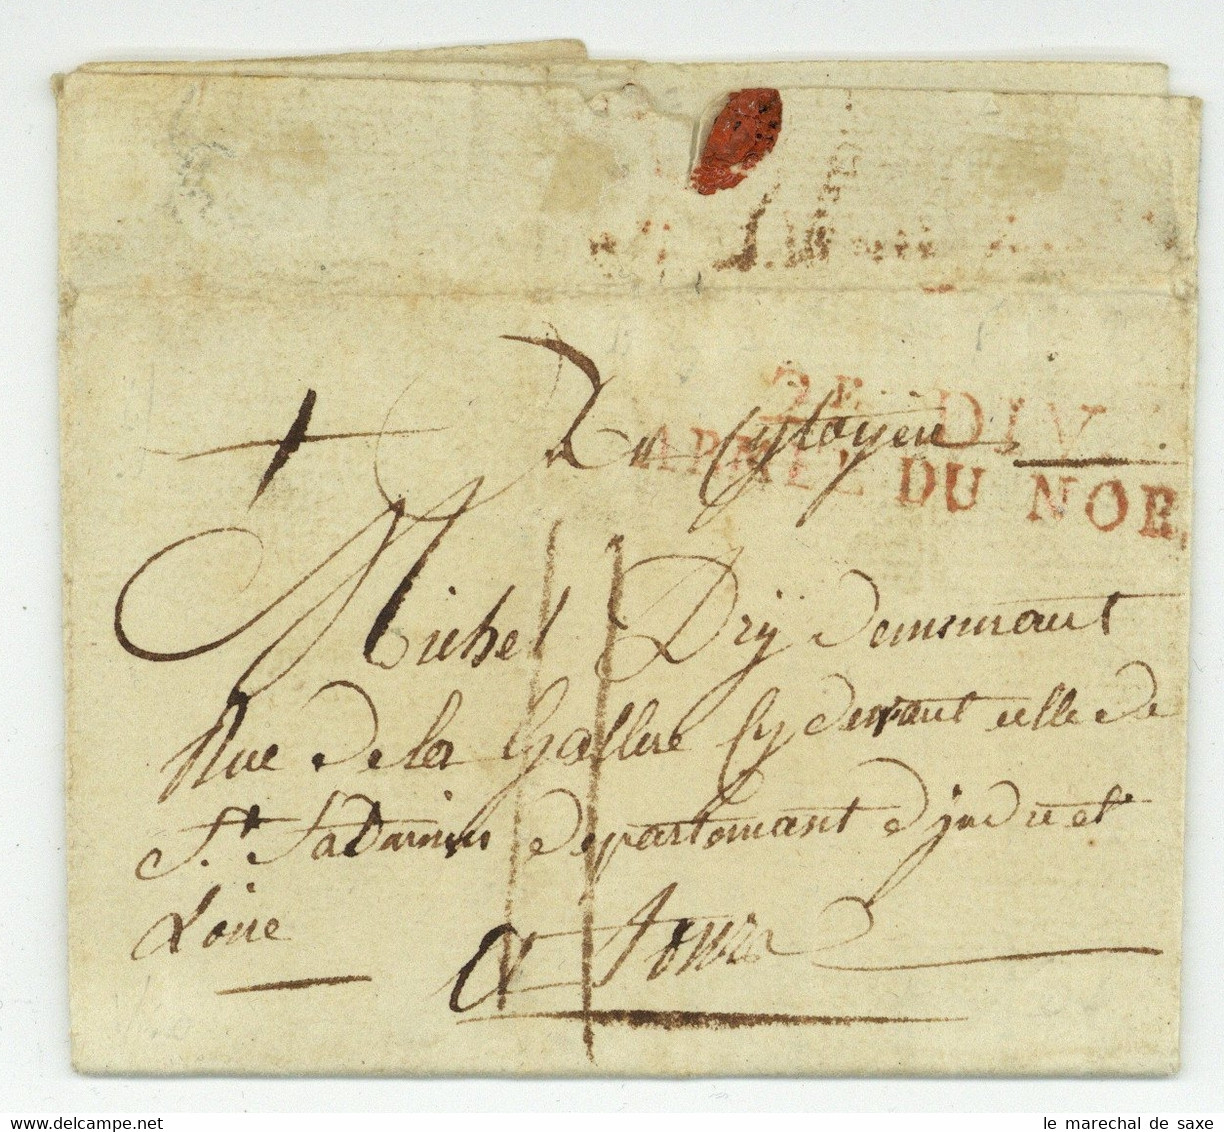 2E DIV.
ARMEE DU NOR
Au Cytoyen
Michel Dry demeurant
Rue de la Gallere Cy devant celle de
St. Saturnin departemant d'jndre et
Loire
A Tours
11
le marechal de saxe